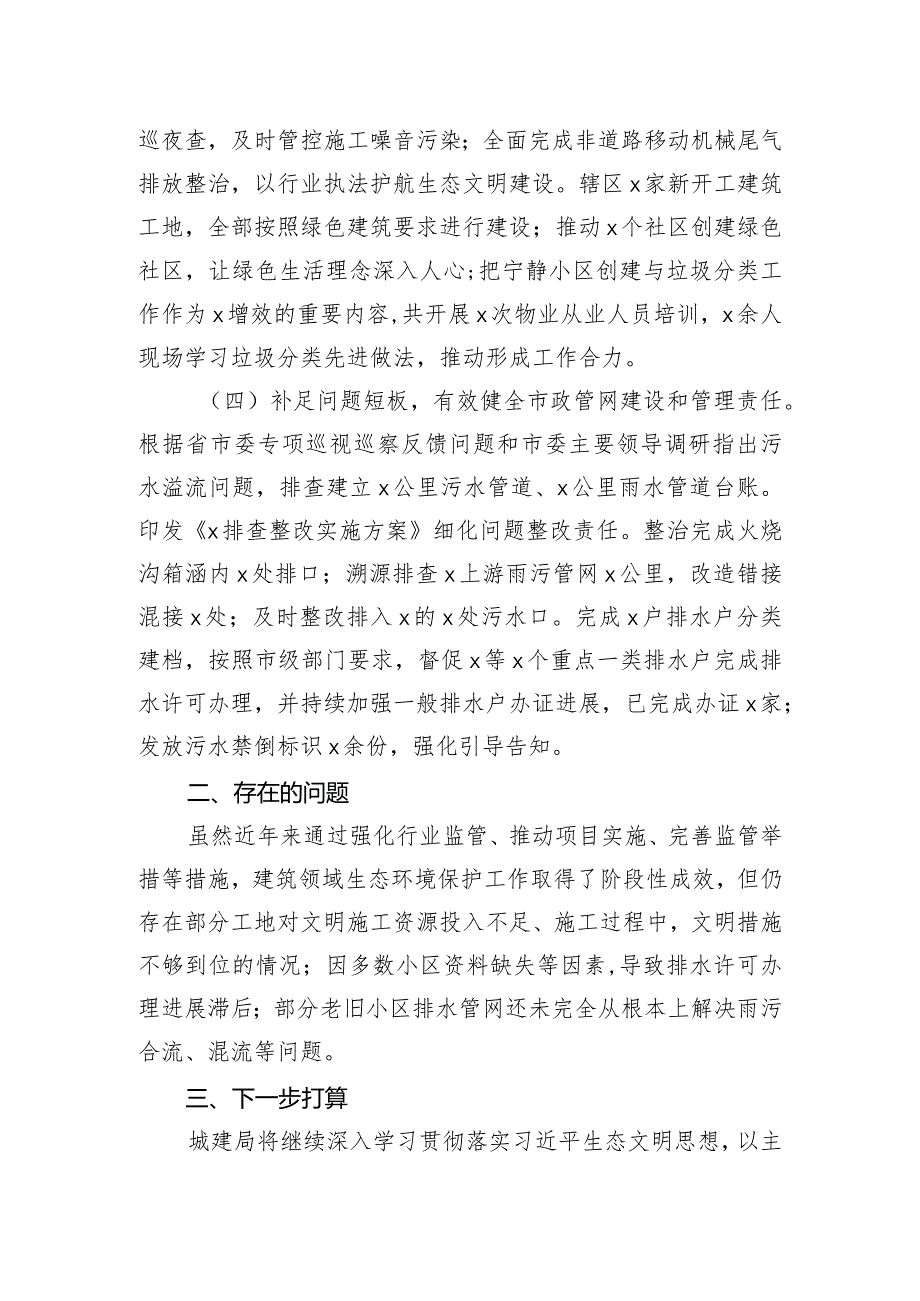 巡夜查，及时管控施工噪音污染；全面完成非道路移动机械尾气
排放整治，以行业执法护航生态文明建设。辖区x家新开工建筑
工地，全部按照绿色建筑要求进行建设；推动x个社区创建绿色
社区，让绿色生活理念深入人心;把宁静小区创建与垃圾分类工
作作为x增效的重要内容,共开展x次物业从业人员培训，x余人
现场学习垃圾分类先进做法，推动形成工作合力。
（四）补足问题短板，有效健全市政管网建设和管理责任。
根据省市委专项巡视巡察反馈问题和市委主要领导调研指出污
水溢流问题，排查建立x公里污水管道、x公里雨水管道台账。
印发《x排查整改实施方案》细化问题整改责任。整治完成火烧
沟箱涵内x处排口；溯源排查x上游雨污管网x公里，改造错接
混接x处；及时整改排入x的x处污水口。完成x户排水户分类
建档，按照市级部门要求，督促x等x个重点一类排水户完成排
水许可办理，并持续加强一般排水户办证进展，已完成办证x家；
发放污水禁倒标识x余份，强化引导告知。
二、存在的问题
虽然近年来通过强化行业监管、推动项目实施、完善监管举
措等措施，建筑领域生态环境保护工作取得了阶段性成效，但仍
存在部分工地对文明施工资源投入不足、施工过程中，文明措施
不够到位的情况；因多数小区资料缺失等因素,导致排水许可办
理进展滞后；部分老旧小区排水管网还未完全从根本上解决雨污
合流、混流等问题。
三、下一步打算
城建局将继续深入学习贯彻落实习近平生态文明思想，以主